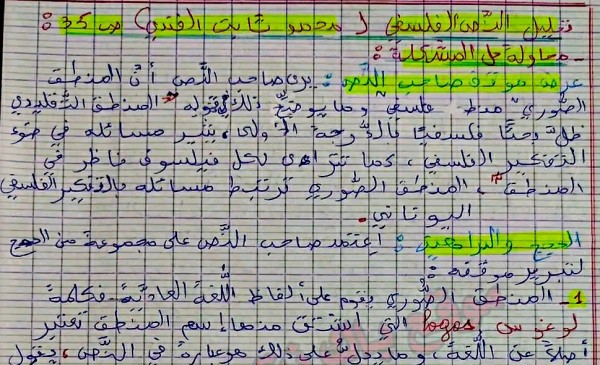 تحليل النّص الفلسفي ( محمد ثابت الفندي ) ص 35 :
ـ محاولة حل المشكلة :
عرض موقف صاحب النّص : يرى صاحب النّص أنّ المنطق
الصّوري منطق فلسفي وما يوضّح ذلك قوله " المنطق التّقليدي
ظلّ بحثا فلسفيّا بالدّرجة الأولى، تثير مسائله في ضوء
التّفكير الفلسفي، كما تتراءى لكل فيلسوف ناظر في
المنطق "، المنطق الصّوري ترتبط مسائله بالتفكير الفلسفي
اليوناني.
الحجج والبراهين : اعتمد صاحب النّص على مجموعة من الحجج
لتبرير موقفه :
1 ـ المنطق الصّوري يقوم على ألفاظ اللّغة العاديّة فكلمة
لوغوس logos التي اشتق منها إسم المنطق تعتبر
أصلا عن اللّغة، وما يدلّ على ذلك هو عبارة في النّص، يقول